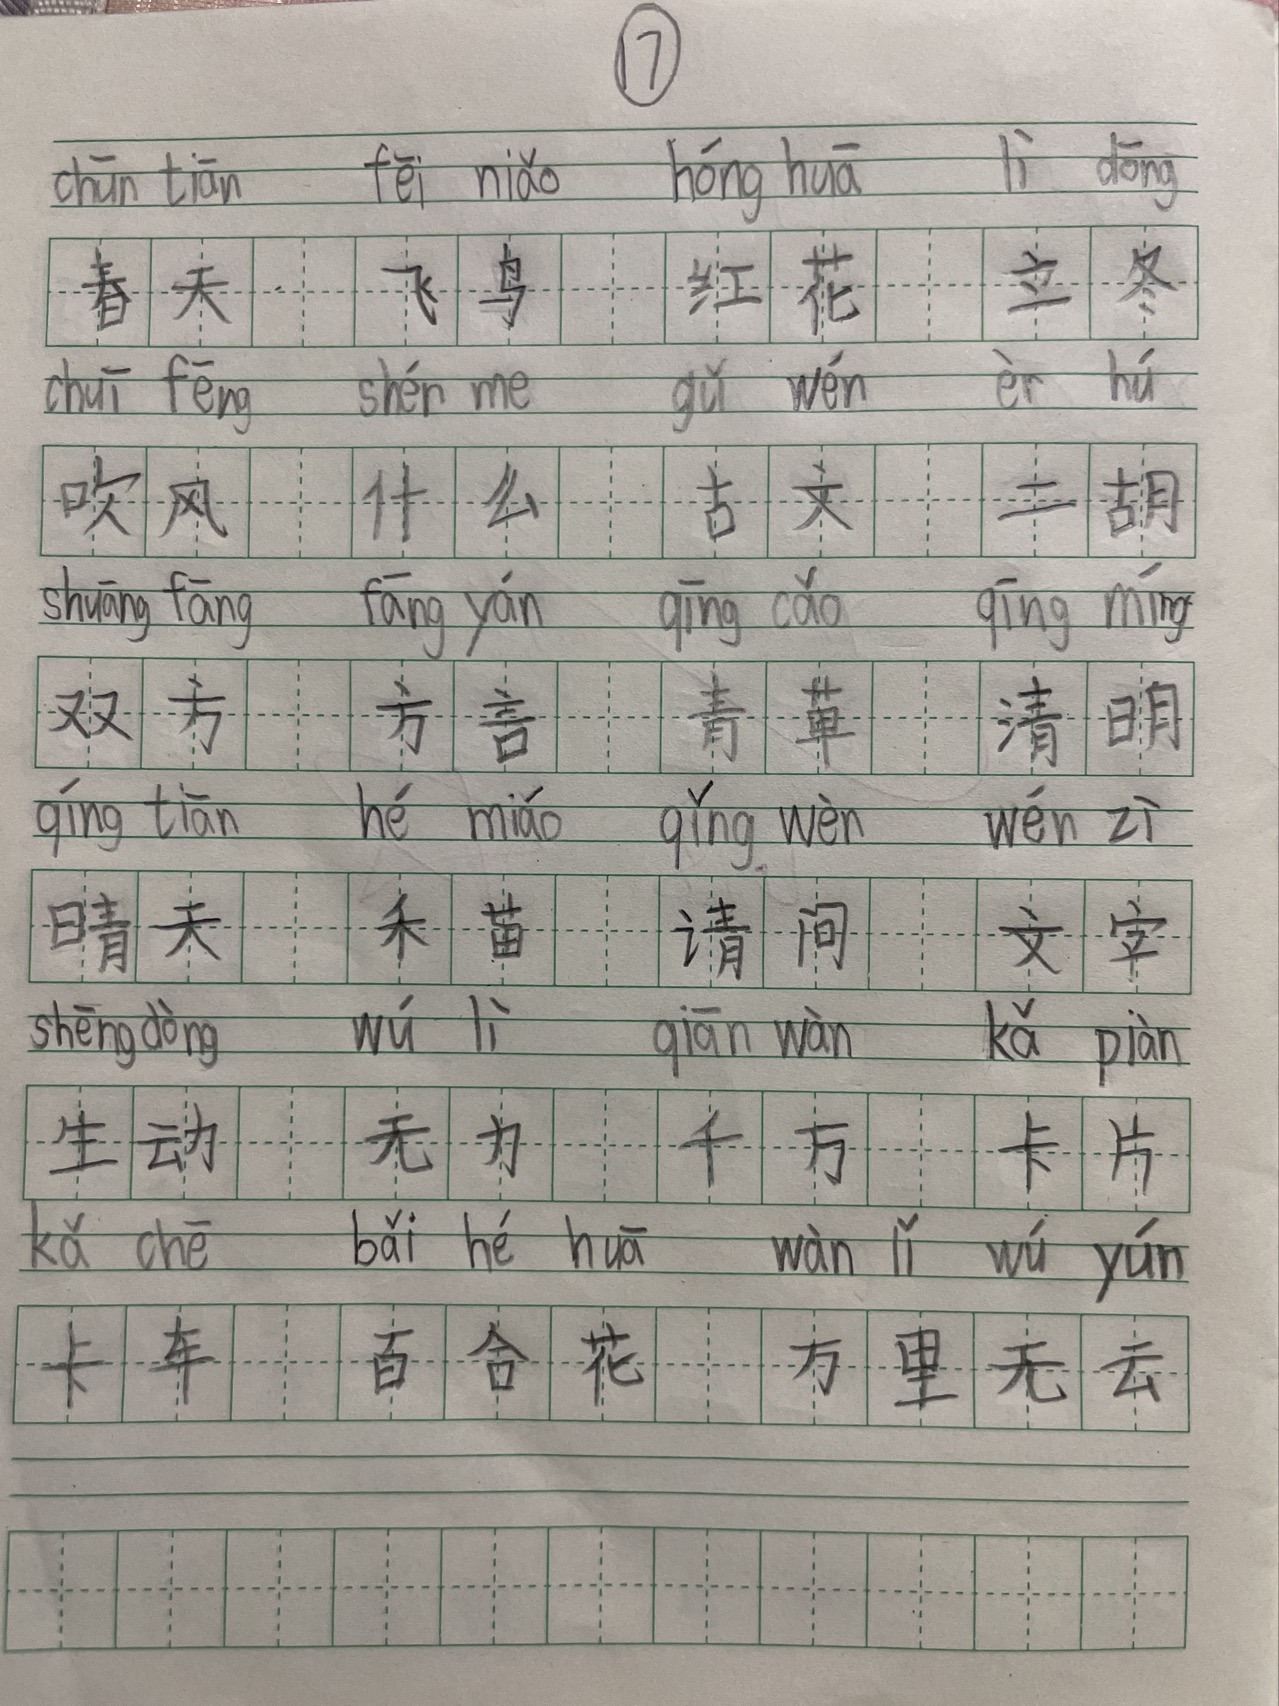 17
chūn tiān fēi niǎo hóng huā lì dōng
春天 飞鸟 红花 立冬
chuī fēng shén me gǔ wén èr hú
吹风 什么 古文 二胡
shuāng fāng fāng yán qīng cǎo qīng míng
双方 方言 青草 清明
qíng tiān hé miáo qǐng wèn wén zì
晴天 禾苗 请问 文字
shēng dòng wú lì qiān wàn kǎ piàn
生动 无力 千万 卡片
kǎ chē bǎi hé huā wàn lǐ wú yún
卡车 百合花 万里无云